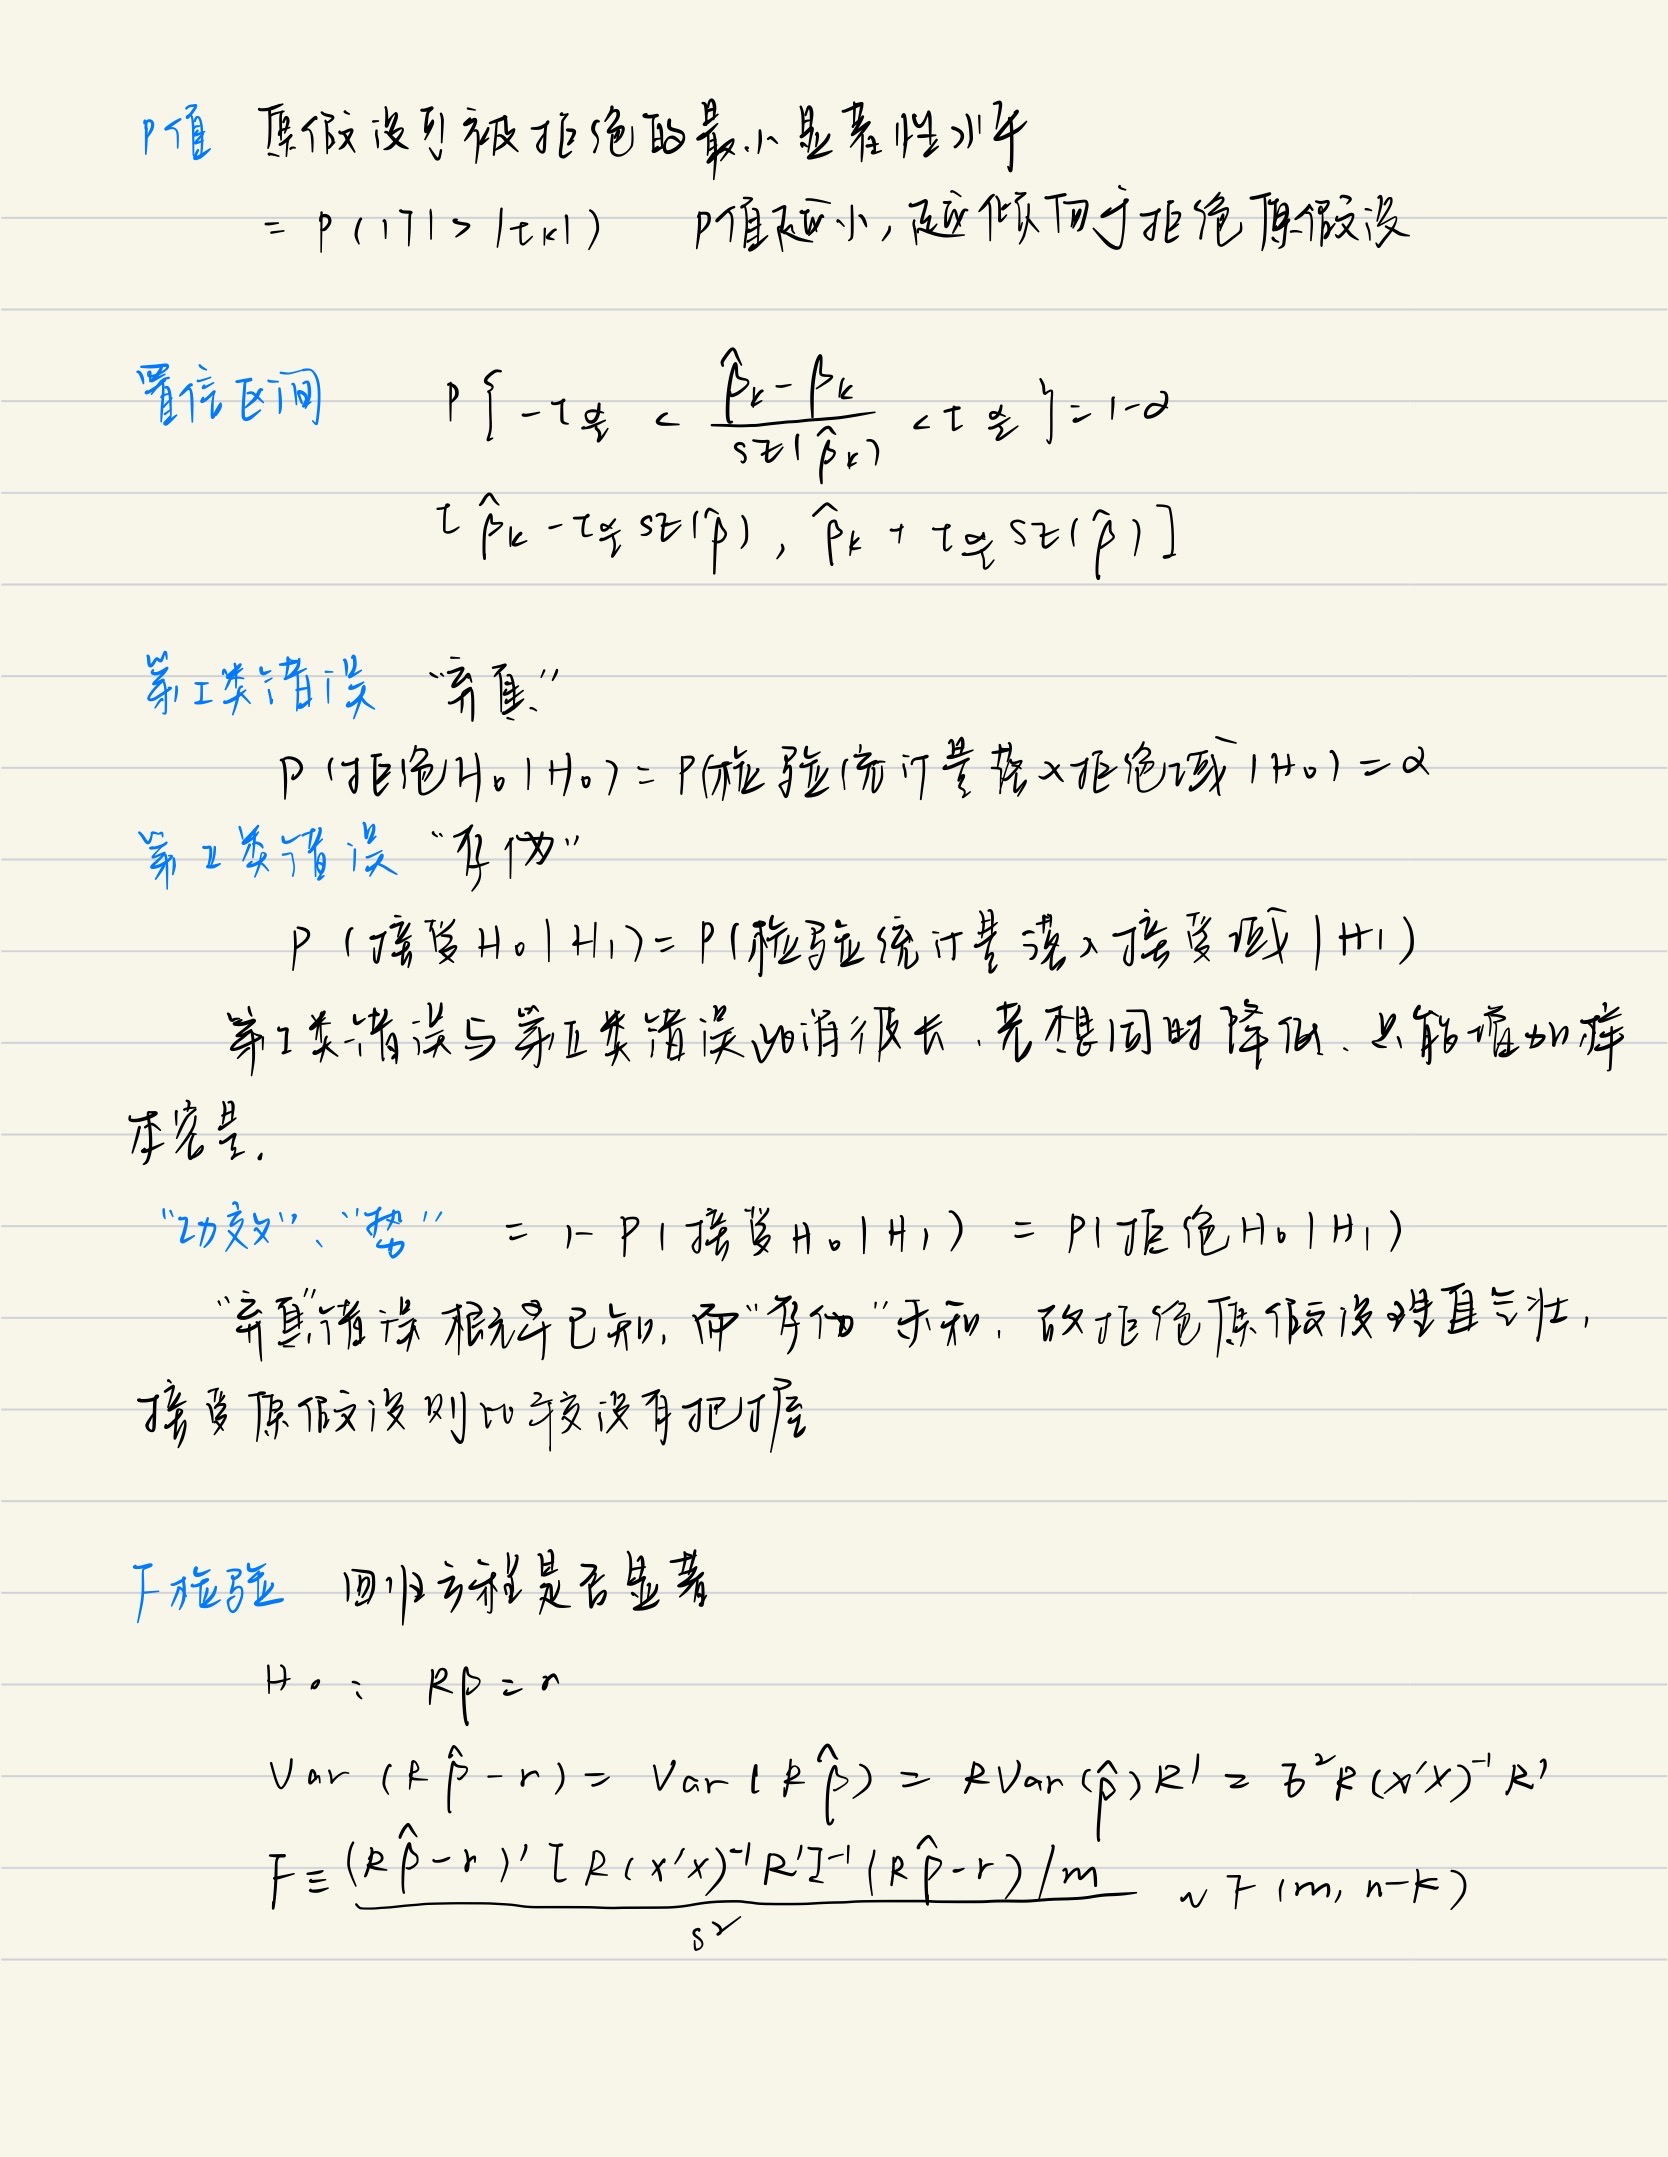 P值 原假设可被拒绝的最小显著性水平
= P(|T| > |t_k|) P值越小,越倾向于拒绝原假设
置信区间 P{ -t_{α/2} < (β̂_k - β_k)/SE(β̂_k) < t_{α/2} } = 1-α
[β̂_k - t_{α/2} SE(β̂), β̂_k + t_{α/2} SE(β̂)]
第I类错误 “弃真”
P(拒绝H₀|H₀) = P(检验统计量落入拒绝域|H₀) = α
第II类错误 “存伪”
P(接受H₀|H₁) = P(检验统计量落入接受域|H₁)
第I类错误与第II类错误此消彼长,若想同时降低,只能增加样
本容量.
“功效”、“势” = 1-P(接受H₀|H₁) = P(拒绝H₀|H₁)
“弃真”错误概率已知,而“存伪”未知,故拒绝原假设理直气壮,
接受原假设则比较没有把握
F检验 回归方程是否显著
H₀: Rβ = r
Var(Rβ̂-r) = Var(Rβ̂) = RVar(β̂)R' = σ²R(X'X)⁻¹R'
F ≡ (Rβ̂-r)'[R(X'X)⁻¹R']⁻¹(Rβ̂-r)/m / s² ~ F(m, n-k)